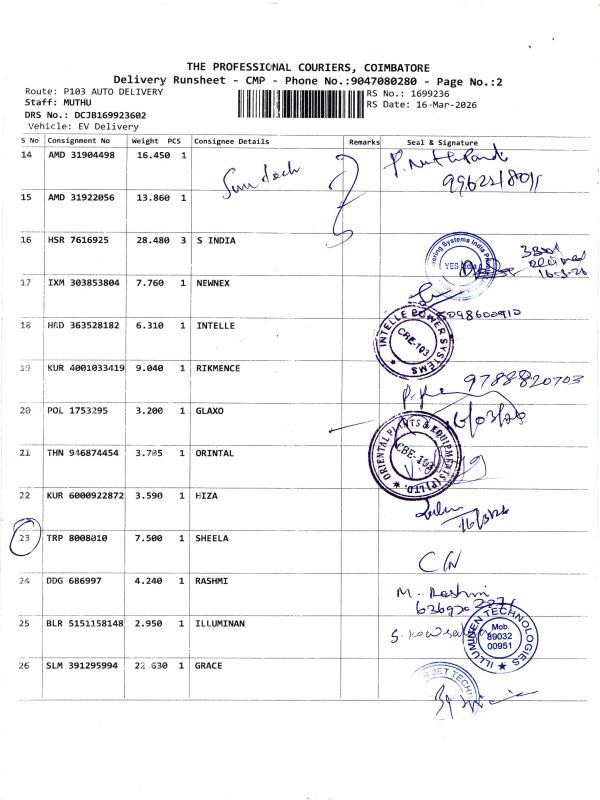 THE PROFESSIONAL COURIERS, COIMBATORE
Delivery Runsheet - CMP - Phone No.:9047080280 - Page No.:2
Route: P103 AUTO DELIVERY
RS No.: 1699236
Staff: MUTHU
RS Date: 16-Mar-2026
DRS No.: DCJB169923602
Vehicle: EV Delivery
S No Consignment No Weight PCS Consignee Details Remarks Seal & Signature
14 AMD 31904498 16.450 1
15 AMD 31922056 13.860 1
16 HSR 7616925 28.480 3 S INDIA
YES
17 IXM 303853804 7.760 1 NEWNEX
18 HRD 363528182 6.310 1 INTELLE
INTELLE POWER SYSTEMS
CBE-103
19 KUR 4001033419 9.040 1 RIKMENCE
9788820703
20 POL 1753295 3.200 1 GLAXO
16/03/26
21 THN 946874454 3.785 1 ORINTAL
ORIENTAL PLANTS & EQUIPMENTS (P) LTD.
CBE-103
22 KUR 6000922872 3.590 1 HIZA
23 TRP 8008010 7.500 1 SHEELA
24 DDG 686997 4.240 1 RASHMI
M. Rashmi
25 BLR 5151158148 2.950 1 ILLUMINAN
ILLUMINEN TECHNOLOGIES
Mob.
89032
00951
26 SLM 391295994 22.630 1 GRACE
JET